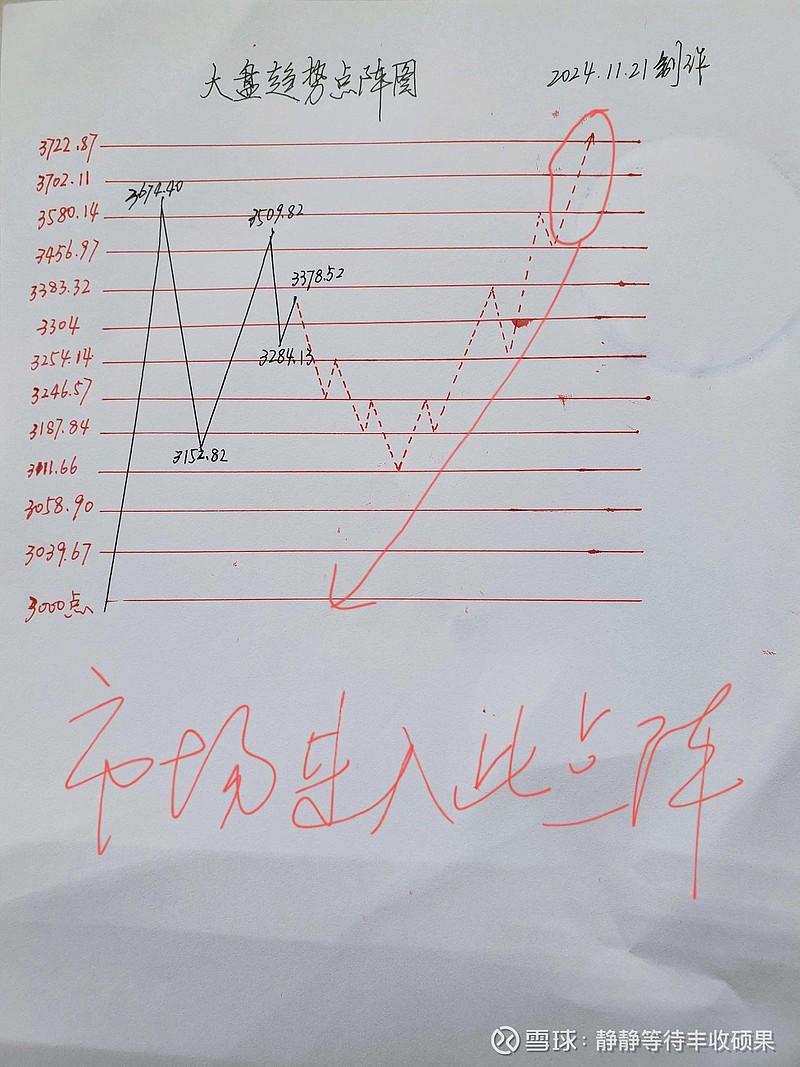 大盘趋势点阵图
2024.11.21制作
3722.87
3702.11
3674.40
3580.14
3509.82
3456.97
3378.52
3383.32
3304
3284.13
3254.14
3246.57
3187.84
3152.82
3111.66
3058.90
3039.67
3000点
市场进入此点阵
雪球：静静等待丰收硕果